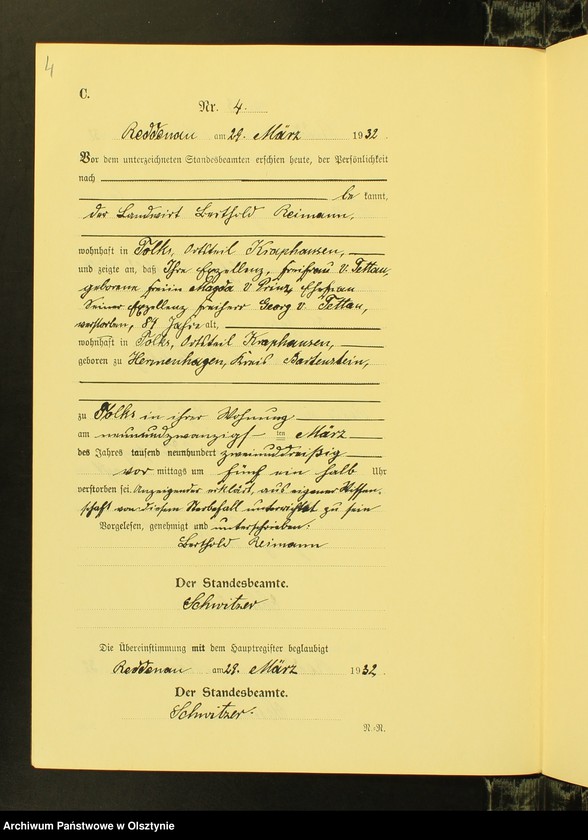 4
C.
Nr. 4.
Reddenau am 29. März 1932.
Vor dem unterzeichneten Standesbeamten erschien heute, der Persönlichkeit
nach
be kannt,
der Landwirt Berthold Reimann,
wohnhaft in Tolks, Ortsteil Kraphausen,
und zeigte an, daß Ihre Exzellenz, Freifrau v. Tettau,
geborene Freiin Magda v Prinz, Ehefrau
Seiner Exzellenz Freiherr Georg v. Tettau,
verstorben, 81 Jahre alt,
wohnhaft in Tolks, Ortsteil Kraphausen,
geboren zu Hermenhagen, Kreis Bartenstein,
zu Tolks in ihrer Wohnung
am neunundzwanzigs ten März
des Jahres tausend neunhundert zweiunddreißig
vor mittags um fünf ein halb Uhr
verstorben sei. Anzeigender erklärt, aus eigener Wissen-
schaft von diesem Sterbefall unterrichtet zu sein
Vorgelesen, genehmigt und unterschrieben.
Berthold Reimann
Der Standesbeamte.
Schwitzer
Die Übereinstimmung mit dem Hauptregister beglaubigt
Reddenau am 29. März 1932.
Der Standesbeamte.
Schwitzer.
N.-R.
Archiwum Państwowe w Olsztynie